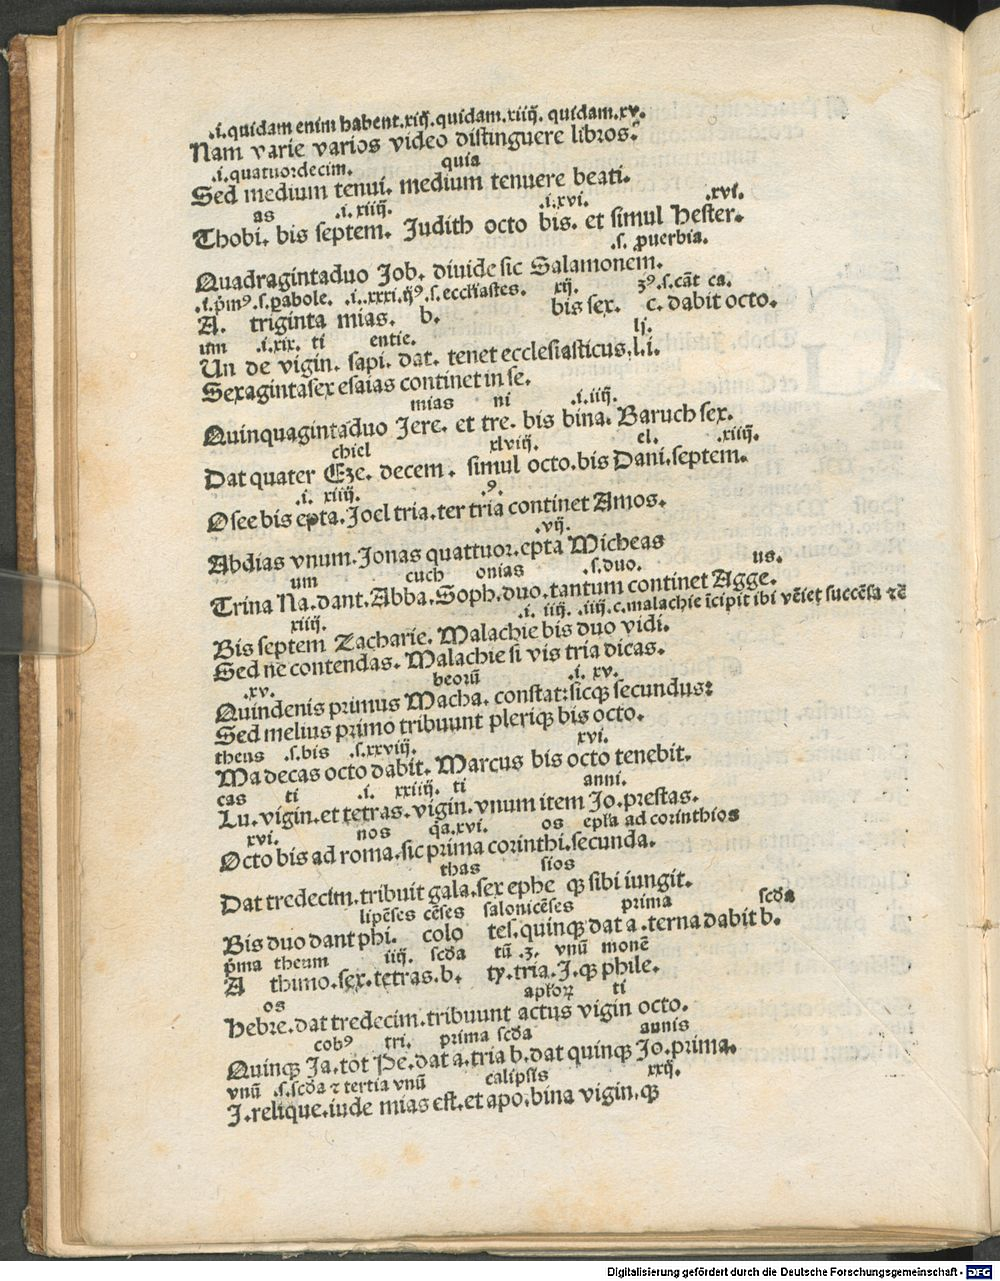 .i. quidam enim habent .xiij. quidam .xiiij. quidam .xv.
Nam varie varios video distinguere libros.
.i. quatuordecim. quia
Sed medium tenui. medium tenuere beati.
as .i. xiiij. .i. xvi. .xvi.
Thobi. bis septem. Judith octo bis. et simul Hester.
.s. ꝓuerbia.
Quadragintaduo Job. diuide sic Salamonem.
.i. p̄mꝰ .s. ꝑabole. .i. xxxi. ijꝰ .s. eccłiastes. xij. ʒꝰ .s. cāt ca.
A. triginta mias. b. bis sex. c. dabit octo.
um .i. xix. ti entie. lj.
Un de vigin. sapi. dat. tenet ecclesiasticus. l. i.
Sexagintasex esaias continet in se.
mias ni .i. iiij.
Quinquagintaduo Jere. et tre. bis bina. Baruch sex.
chiel xlviij. el. .xiiij.
Dat quater Eze. decem. simul octo. bis Dani. septem.
.i. xiiij. .9.
Osee bis epta. Joel tria. ter tria continet Amos.
.vij.
Abdias vnum. Jonas quattuor. epta Micheas
um cuch onias .s. duo. us.
Trina Na. dant. Abba. Soph. duo. tantum continet Agge.
xiiij. .i. iiij. .iiij. c. malachie īcipit ibi vēiet succēsa ⁊ē
Bis septem Zacharie. Malachie bis duo vidi.
Sed ne contendas. Malachie si vis tria dicas.
.xv. beorū .i. xv.
Quindenis primus Macha. constat: sicqꝫ secundus:
Sed melius primo tribuunt pleriqꝫ bis octo.
theus .s. bis .s. xxviij. xvi.
Ma decas octo dabit. Marcus bis octo tenebit.
cas ti .i. xxiiij. ti anni.
Lu. vigin. et tetras. vigin. vnum item Jo. prestas.
xvi. nos q̄a. xvi. os epła ad corinthios
Octo bis ad roma. sic prima corinthi. secunda.
thas sios
Dat tredecim. tribuit gala. sex ephe qꝫ sibi iungit.
lipēses cēses salonicēses prima scḋa
Bis duo dant phi. colo tes. quinqꝫ dat a. terna dabit b.
p̄ma theum iiij. scḋa tū .ʒ. vnū monē
A thimo. sex. tetras. b. ty. tria. J. qꝫ phile.
os apłoꝝ ti
Hebre. dat tredecim. tribuunt actus vigin octo.
cobꝰ tri. prima scḋa annis
Quinqꝫ Ja. tot Pe. dat a. tria b. dat quinqꝫ Jo. prima.
vnū .s. scḋa ⁊ tertia vnū calipsis xxij.
J. relique. iude mias est. et apo. bina vigin. qꝫ
Digitalisierung gefördert durch die Deutsche Forschungsgemeinschaft - DFG